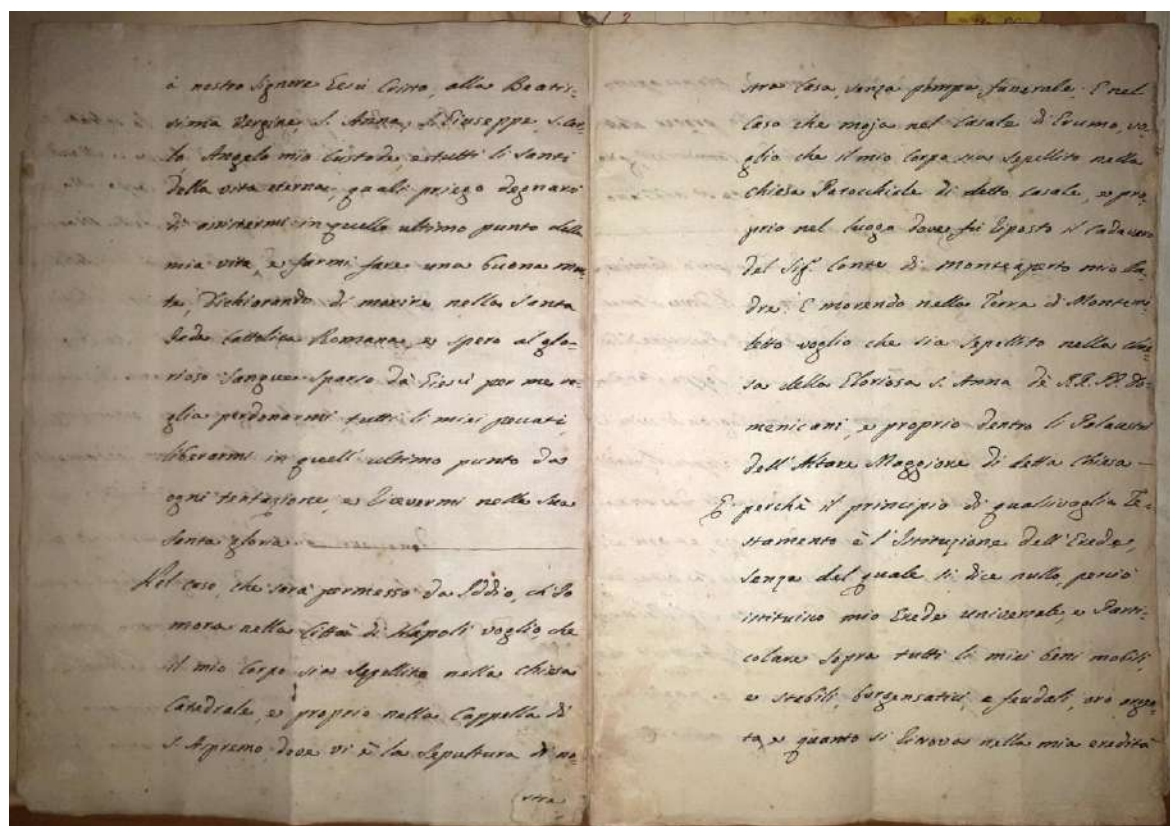 à nostro Signore Giesù Cristo, alla Beatis:
sima Vergine, S. Anna, S. Giuseppe, S. Car:
lo Angelo mio Custode, e tutti li Santi
della vita eterna, quali priego degnarsi
di assistermi in quello ultimo punto della
mia vita, e farmi fare una buona mor
te, Dichiarando di morire nella Santa
Fede Cattolica Romana, e spero al glo=
rioso Sangue sparso da Giesù per me vo=
glia perdonarmi tutti li miei peccati,
liberarmi in quell' ultimo punto da
ogni tentazione, e ricevermi nella Sua
Santa gloria
Nel caso, che sarà permesso da Iddio, ch'Io
mora nella Città di Napoli voglio, che
il mio Corpo sia Sepellito nella Chiesa
Catedrale, e proprio nella Cappella di
S. Aspremo dove vi è la Sepultura di no=
stra
stra Casa, senza pompa funerale. E nel
Caso che moja nel Casale di Grumo, vo=
glio che il mio Corpo sia Sepellito nella
Chiesa Parocchiale di detto Casale, e pro,
prio nel luogo dove fu riposto il Cadavero
del Sig.r Conte di Monteaperto mio Pa=
dre. E morendo nella Terra di Montemi
letto voglio che sia Sepellito nella Chie
sa della Gloriosa S. Anna de RR. PP. Do=
menicani, e proprio dentro li Balaustri
dell'Altare Maggiore di detta Chiesa —
E perchè il principio di qualsivoglia Te=
stamento è l'Istituzione dell'Erede,
senza del quale si dice nullo, perciò
istituisco mio Erede universale, e Parti=
colare sopra tutti li miei beni mobili,
e stabili, burgensatici, e feudali, oro argen
to, e quanto si ritrova nella mia eredità